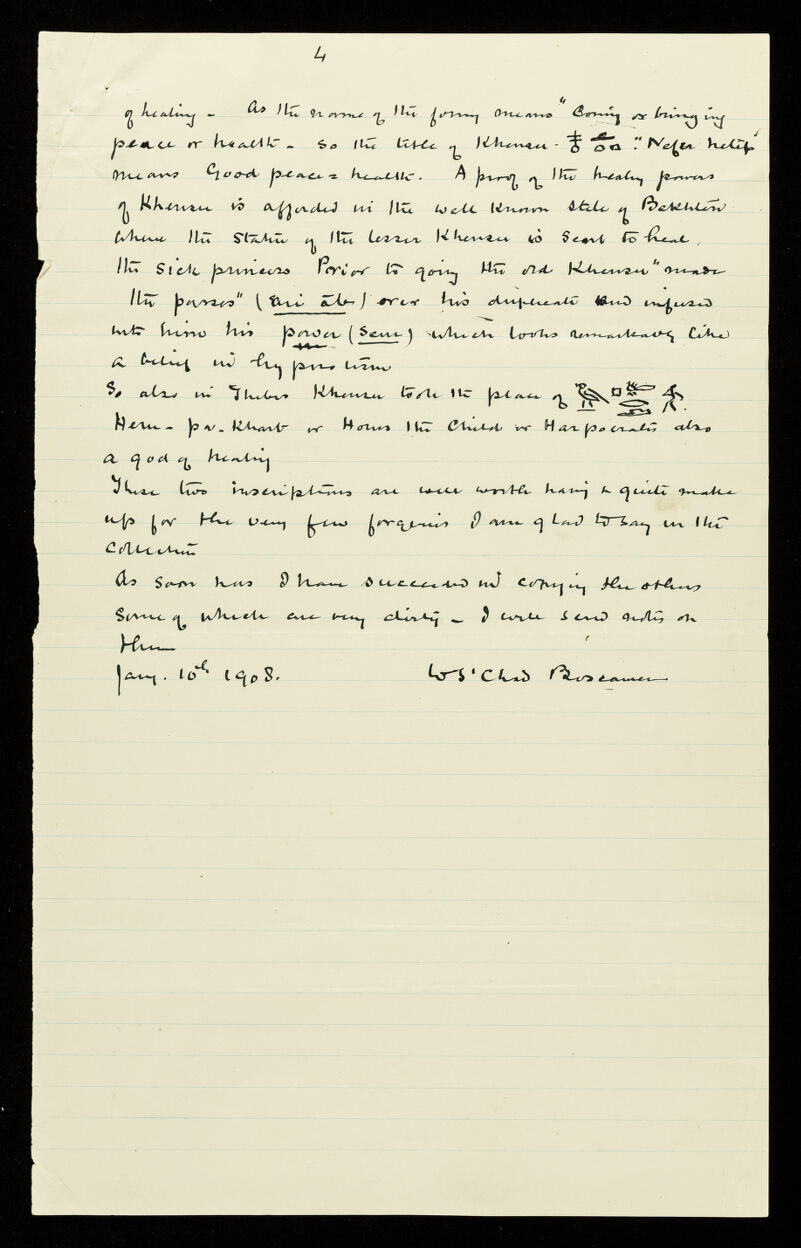 4
of healing - As the name of the former means "Coming or bringing
peace or health - so the title of Khensu - 𓄤 𓊵 : "Nefer hetep"
means Good peace = health. A proof of the healing powers
of Khensu is afforded in the well known stele of Bekhten
where the statue of the lesser Khensu is sent to heal
the sick princess Prior to going the old Khensu "made
the passes" ( ) over his duplicate and infused
into him his power ( ) which looks remarkably like
a belief in hypnotism
So also in Thebes Khensu took the place of
Heru - pa - Khart or Horus the Child or Harpocrates also
a god of healing
These two inscriptions are well worth having & quite make
up for the very few forgeries I am glad to say in the
Collection
As soon has I have succeeded in copying the others
Some of which are very dirty - I will send notes on
them
Jany. 10th 1908. W St Chad Boscawen